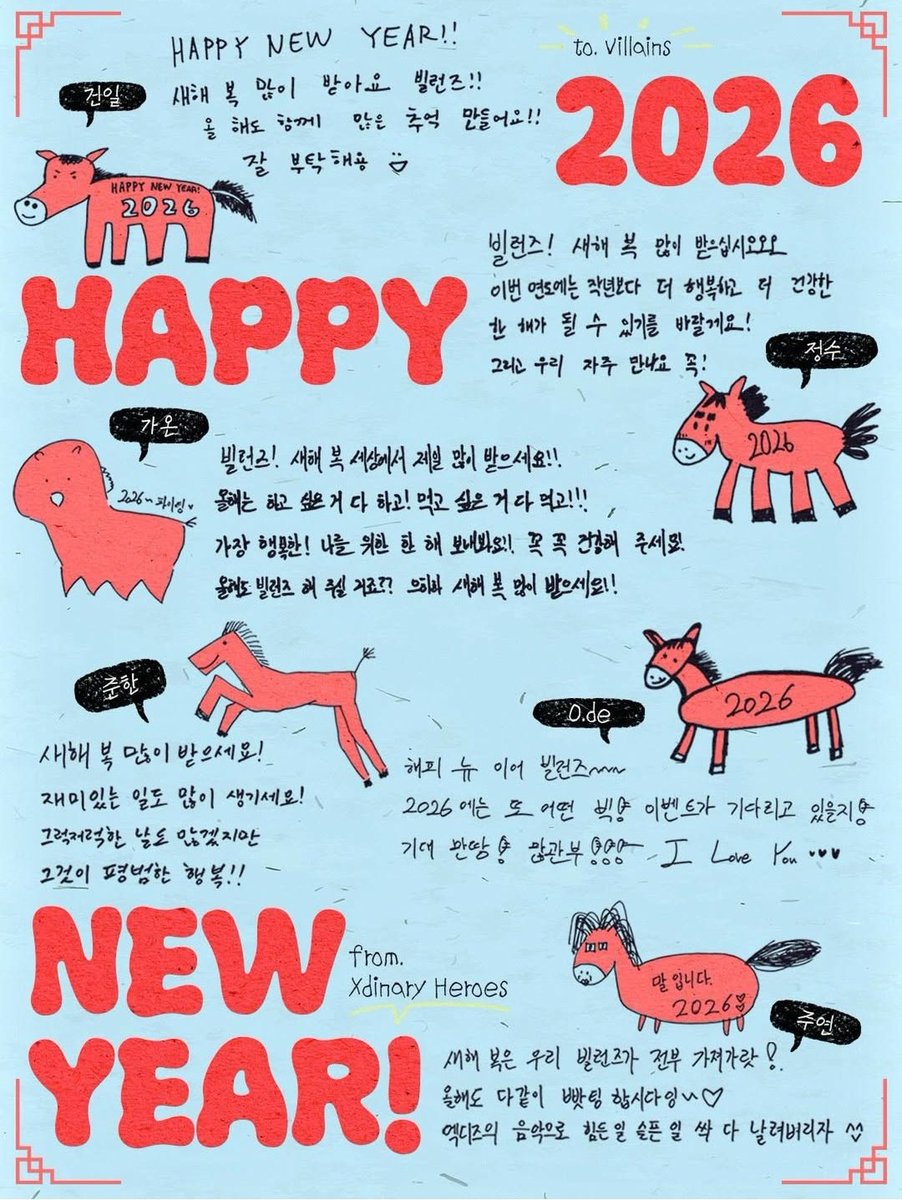 to. Villains
2026
건일
HAPPY NEW YEAR!!
새해 복 많이 받아요 빌런즈!!
올 해도 함께 많은 추억 만들어요!!
잘 부탁해용
HAPPY NEW YEAR!
2026
HAPPY
정수
빌런즈! 새해 복 많이 받으십시오오오
이번 연도에는 작년보다 더 행복하고 더 건강한
한 해가 될 수 있기를 바랄게요!
그리고 우리 자주 만나요 꼭!
2026
가온
2026~ 파이팅♥
빌런즈! 새해 복 세상에서 제일 많이 받으세요!!
올해는 하고 싶은 거 다 하고! 먹고 싶은 거 다 먹고!!!
가장 행복한! 나를 위한 한 해 보내봐요!! 꼭 꼭 건강해 주세요!
올해도 빌런즈 해 주실 거죠?? 으히하 새해 복 많이 받으세요!!
준한
새해 복 많이 받으세요!
재미있는 일도 많이 생기세요!
그럭저럭한 날도 많겠지만
그것이 평범한 행복!!
O.de
2026
해피 뉴 이어 빌런즈~~~
2026에는 또 어떤 빅 이벤트가 기다리고 있을지
기대 만땅! 많관부!!! I Love You ♥♥♥
NEW
YEAR!
from.
Xdinary Heroes
주연
말입니다.
2026
새해 복은 우리 빌런즈가 전부 가져가랏!
올해도 다같이 빳팅 합시다잉~♡
엑디즈의 음악으로 힘든 일 슬픈 일 싹 다 날려버리자 ^^